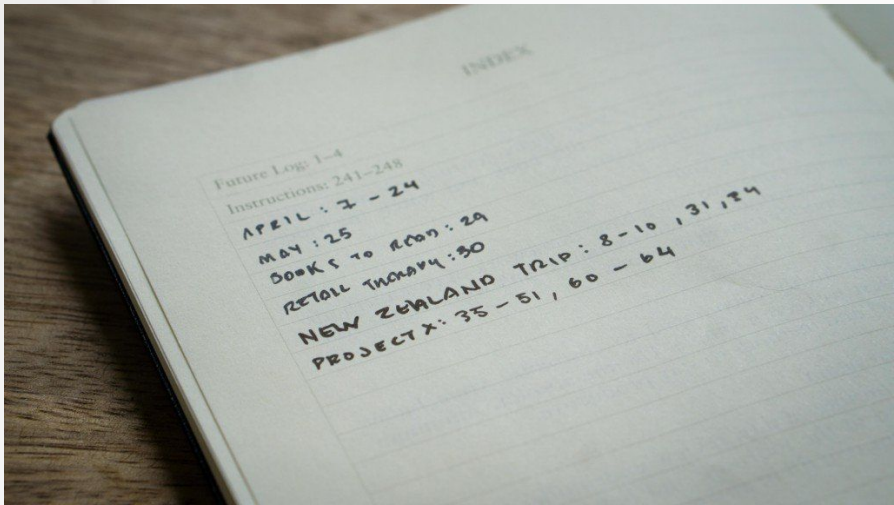 INDEX
Future Log: 1–4
Instructions: 241–248
APRIL : 7 - 24
MAY : 25
BOOKS TO READ : 29
RETAIL THERAPY : 30
NEW ZEALAND TRIP : 8-10 , 31 ,
PROJECT X : 35 - 51 , 60 - 64